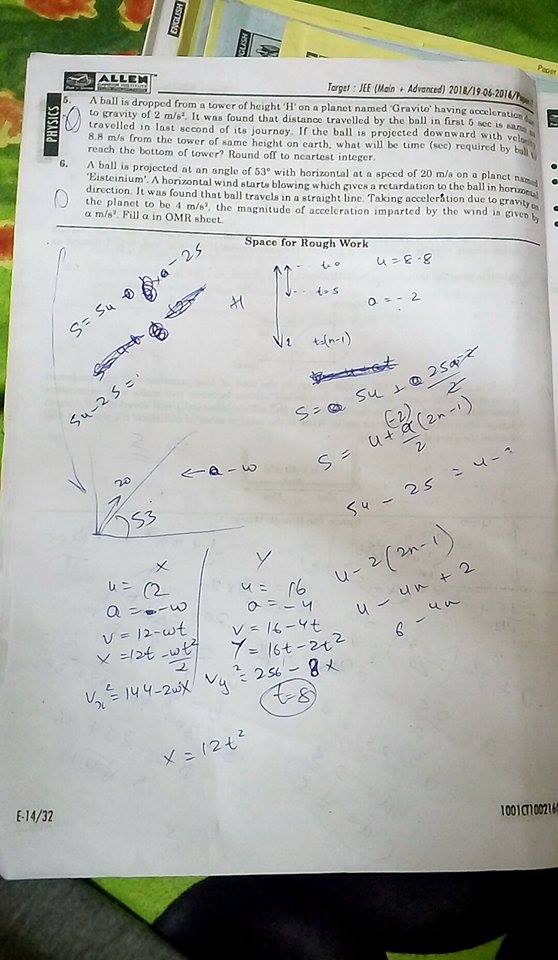 ENGLISH
ENGLISH
Paper
ALLEN
Target : JEE (Main + Advanced) 2018/19-06-2016/Paper
PHYSICS
5. A ball is dropped from a tower of height 'H' on a planet named 'Gravito' having acceleration
to gravity of 2 m/s². It was found that distance travelled by the ball in first 5 sec is same
travelled in last second of its journey. If the ball is projected downward with
8.8 m/s from the tower of same height on earth, what will be time (sec) required by ball
reach the bottom of tower? Round off to neartest integer.
6. A ball is projected at an angle of 53° with horizontal at a speed of 20 m/s on a planet
'Eisteinium'. A horizontal wind starts blowing which gives a retardation to the ball in
direction. It was found that ball travels in a straight line. Taking acceleration due to gravity
the planet to be 4 m/s², the magnitude of acceleration imparted by the wind is given by
α m/s². Fill α in OMR sheet.
Space for Rough Work
t=0
u = 8.8
t=5
a = -2
H
t=(n-1)
5u-25 =
S = 5u +
S = u + a(2n-1)
(-2)
2
5u - 25 = u -
20
53
← a-w
u - 2(2n-1)
u - 4n + 2
6 - 4n
X
Y
u = 12
u = 16
a = -w
a = -4
v = 12-wt
v = 16-4t
x = 12t - wt²
2
Y = 16t - 2t²
Vx² = 144-2wx
Vy² = 256 - 8x
t=8
x = 12t²
E-14/32
1001CT100216